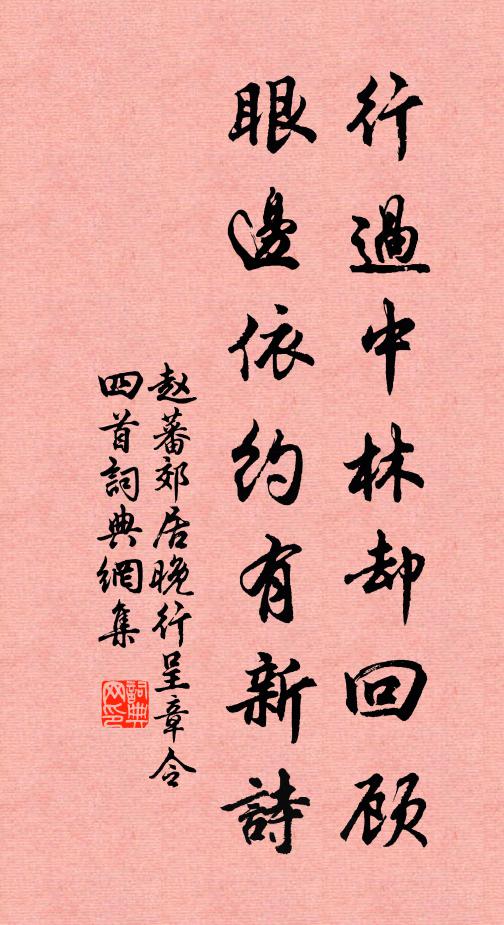 行過中林却回顾
眼邊依約有新詩
赵蕃郊居晚行呈章令
四首詞典網集
詞典网印